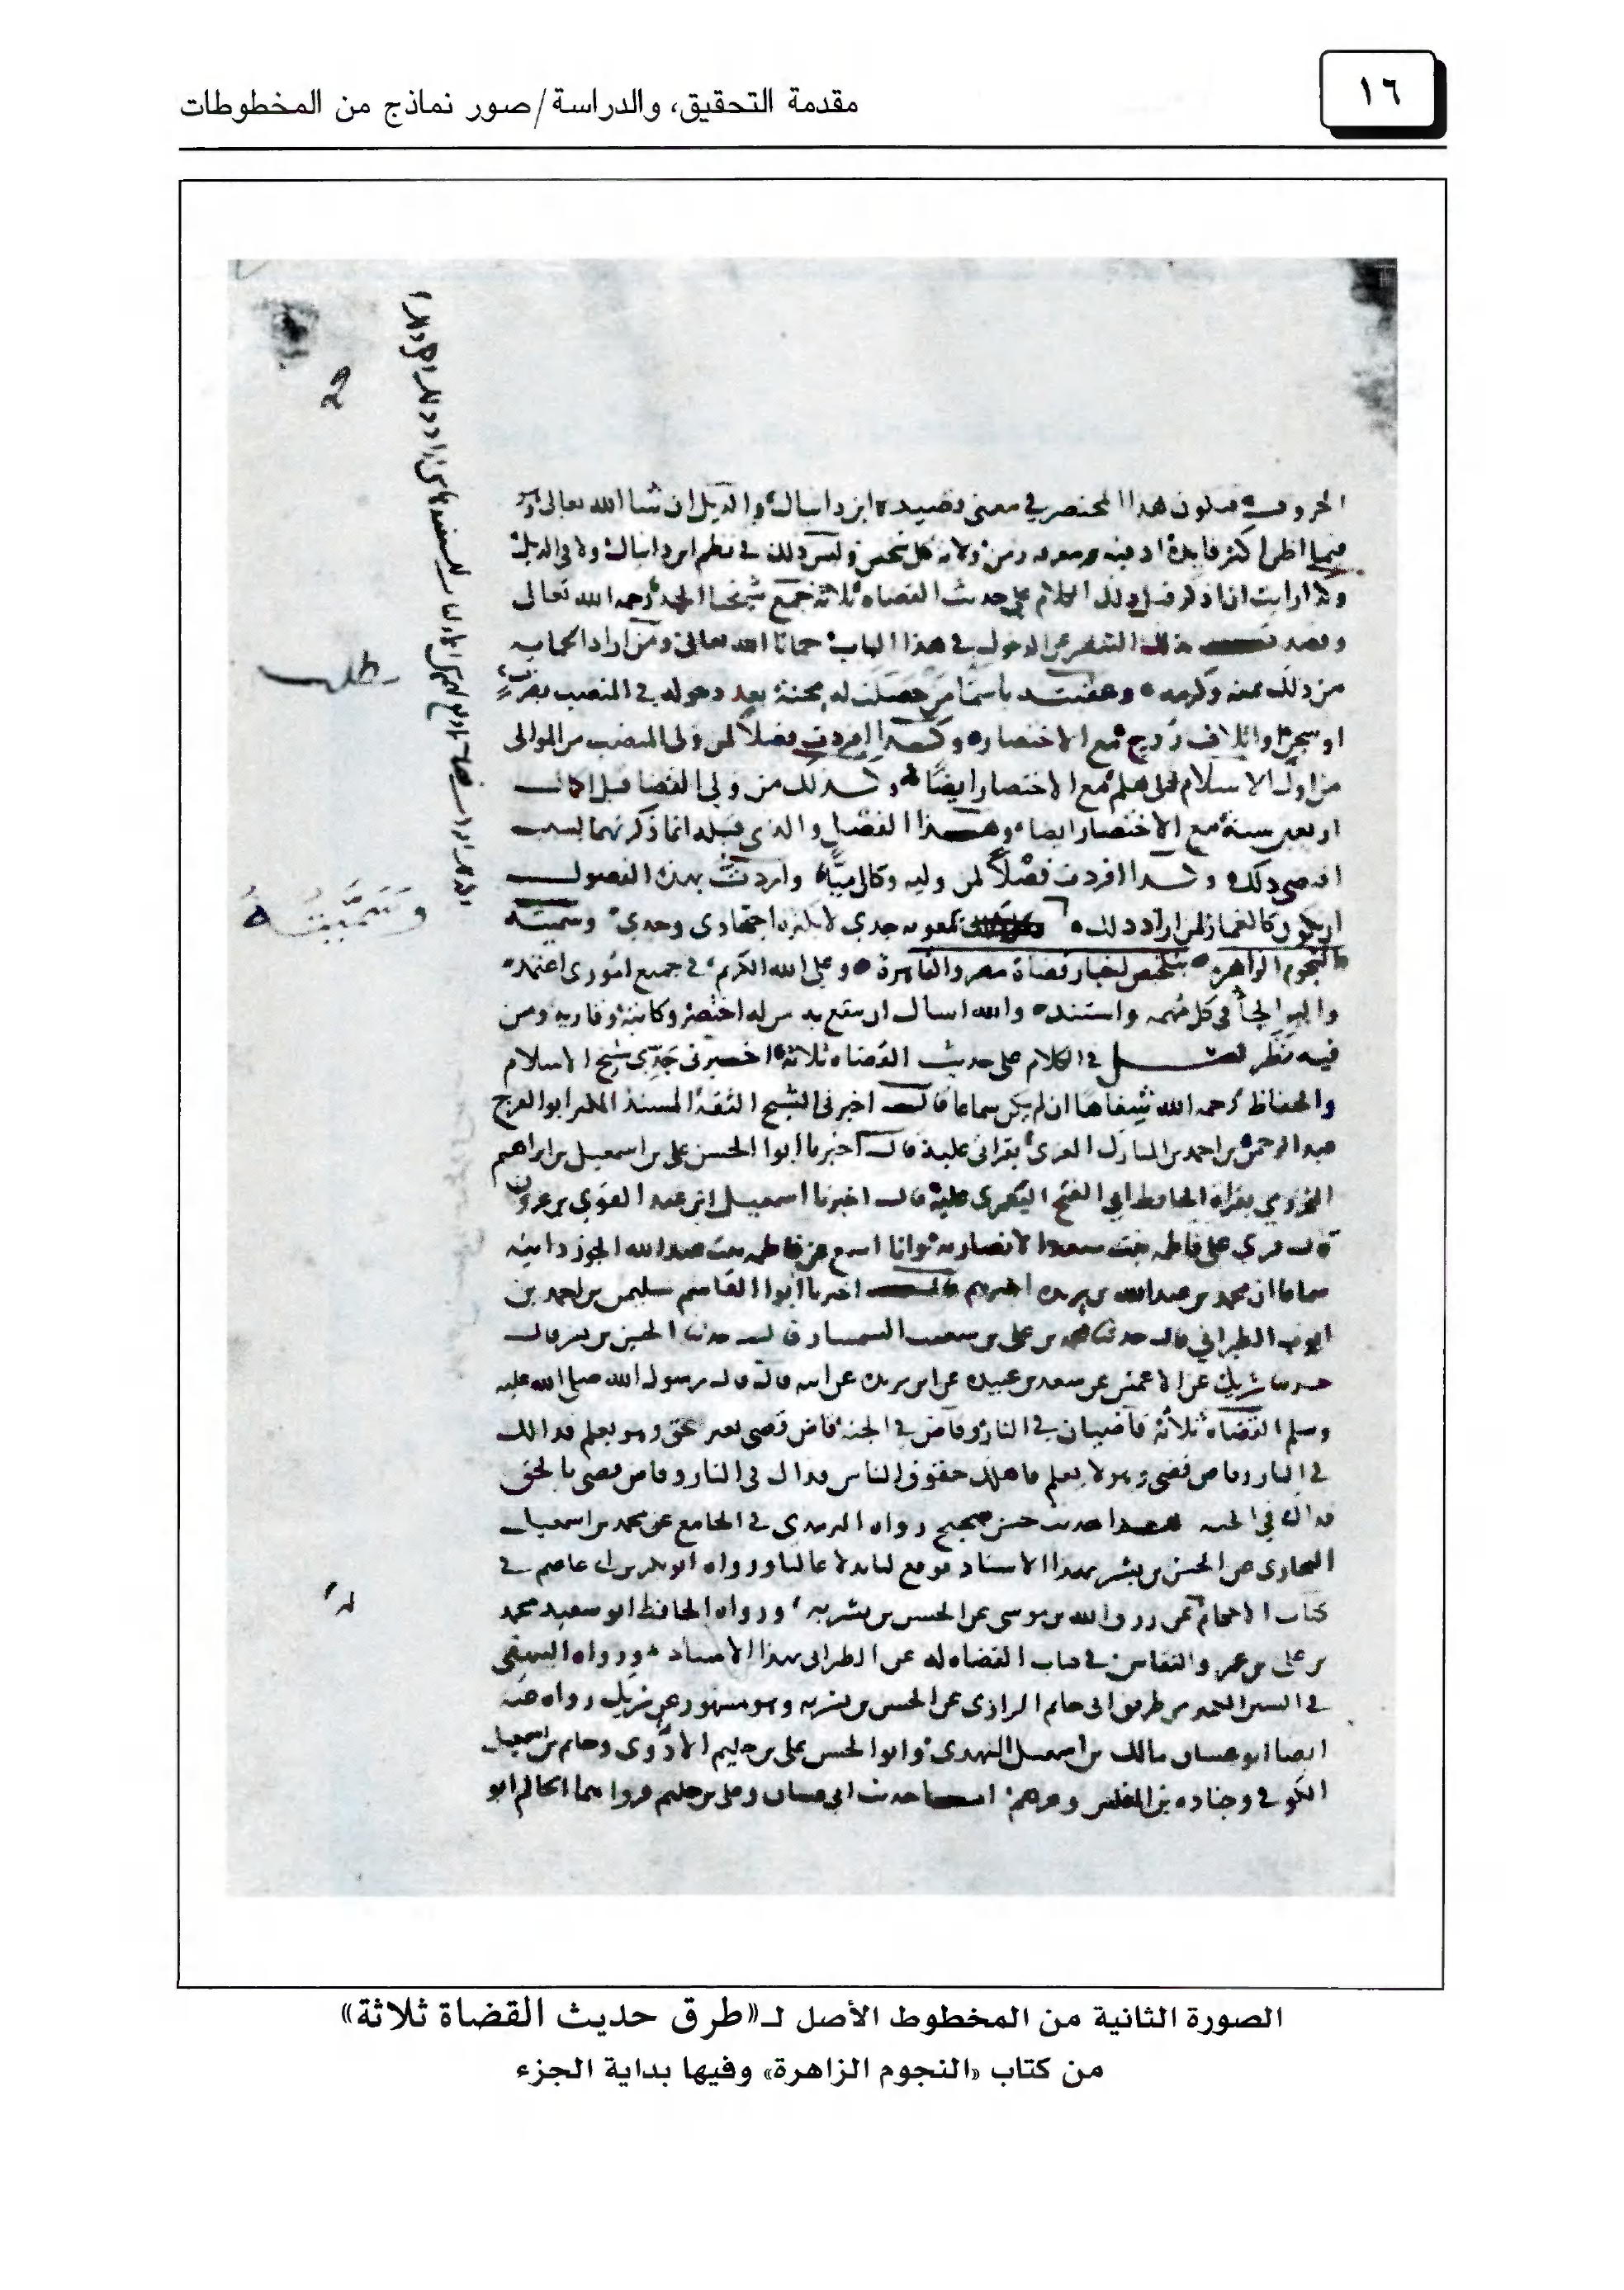 ١٦
مقدمة التحقيق، والدراسة/صور نماذج من المخطوطات
الحروف فيكون هذا المختصر في معنى ابن دانيال والذيل ان شا الله تعالى
فيما اظن اكثر فايدة وليس ذلك في نظم ابن دانيال ولا في الذيل
ولذا رايت ان اذكر قبل ذلك الكلام على حديث القضاه ثلاثة جمع شيخنا الجد رحمه الله تعالى
في هذا الباب حمانا الله تعالى ومن اراد
من ذلك بمنه وكرمه باسما من حصلت له محنة بعد دخوله في المنصب بضرب
او سجن او اتلاف روح مع الاختصار وكذا افردت فصلا لمن ولى المنصب من الموالى
من اول الاسلام مع الاختصار ايضا وكذلك من ولى القضا قبل
اربعين سنة مع الاختصار ايضا وهذا الفصل والذى قبله انما ذكرتهما لسبب
اقتضى ذلك وكذا افردت فصلا لمن وليه وكان واردت بهذه الفصول
ان يكون لمن اراد ذلك جدي اجتهادى وحدي وسميته
النجوم الزاهرة بتلخيص اخبار قضاة مصر والقاهرة وعلى الله الكريم في جميع امورى اعتمد
واليه الجأ في كل مهمه واستند والله اسال ان ينفع به وكاتبه وقاريه ومن
فيه نظر فصل في الكلام على حديث القضاه ثلاثة اخبرنى جدي شيخ الاسلام
والحفاظ رحمه الله شفاها ان لم يكن سماعا قال اخبرنى الشيخ الثقة المسند المكثر ابو الفرج
عبد الرحمن بن احمد بن المبارك الغزى بقراتى عليه قال اخبرنا ابوا الحسن على بن اسمعيل بن ابراهيم
المخزومي بقراة الحافظ ابي الفتح اليعمرى عليه قال اخبرنا اسمعيل ابن عبد القوي بن عزون
قال قرى على فاطمه بنت سعد الانصاريه وانا اسمع عن فاطمه بنت عبد الله الجوزدانيه
سماعا ان محمد بن عبد الله بن ريده اخبرهم قال اخبرنا ابوا القاسم سليمن بن احمد بن
ايوب الطبرانى قال حدثنا بن على بن شعيب السمسار قال حدثنا الحسن بن بشر قال
حدثنا شريك عن الاعمش عن سعد بن عبيده عن ابن بريده عن ابيه قال قال رسول الله صلى الله عليه
وسلم القضاه ثلاثة قاضيان في النار وقاض في الجنة قاض قضى بغير حق وهو يعلم فذالك
في النار وقاض قضى وهو لا يعلم فاهلك حقوق الناس فذاك فى النار وقاض قضى بالحق
فذاك في الجنه هذا حديث حسن صحيح رواه الترمذي في الجامع عن محمد بن اسمعيل
البخارى عن الحسن بن بشر بهذا الاسناد فوقع لنا بدلا عاليا ورواه ابو بكر بن ابى عاصم في
كتاب الاحكام عن رزق الله بن موسى عن الحسن بن بشر به ورواه الحافظ ابو سعيد محمد
بن على بن عمرو النقاش في كتاب القضاه له عن الطبرانى بهذا الاسناد ورواه البيهقى
في السنن الكبير من طريق ابى حاتم الرازى عن الحسن بن بشر به وهو مشهور عن شريك رواه عنه
ايضا ابو غسان مالك بن اسمعيل النهدى وابوا الحسن على بن حكيم الاودى وحاتم بن اسمعيل
الكوفي وجناده بن المغلس وغيرهم اما حديث ابى غسان وعلى بن حكيم فرواهما الحاكم ابو
وسَمَّيتُهُ
الصورة الثانية من المخطوط الأصل لـ«طرق حديث القضاة ثلاثة»
من كتاب «النجوم الزاهرة» وفيها بداية الجزء